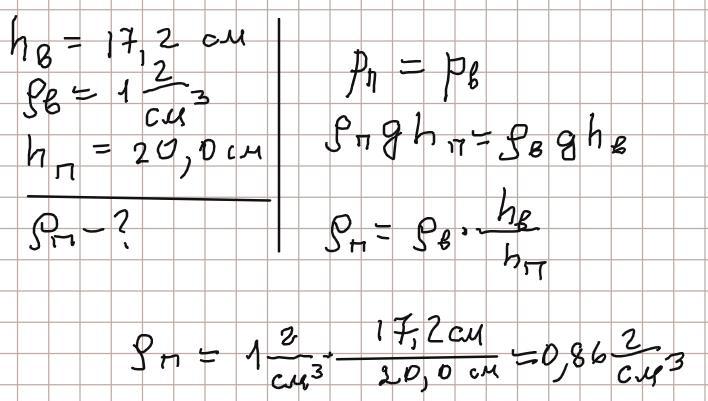 hв = 17,2 см
ρв = 1 г/см³
hп = 20,0 см
ρп - ?
pп = pв
ρп g hп = ρв g hв
ρп = ρв · hв/hп
ρп = 1 г/см³ · 17,2 см/20,0 см = 0,86 г/см³